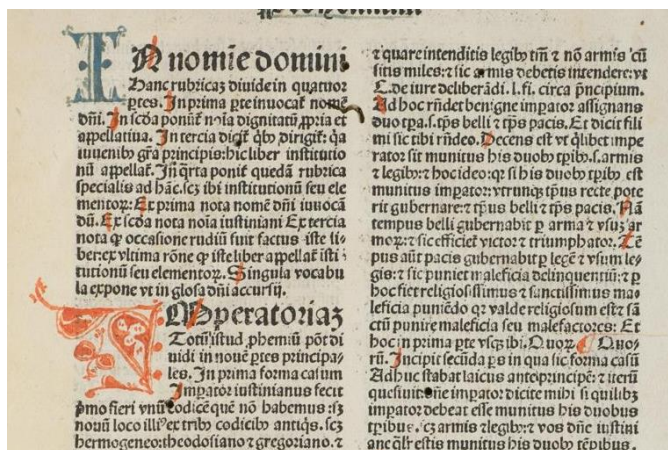 IN nomĩe domini
Hanc rubricaȝ diuide in quatuor
ꝑtes. In prima ꝑte inuocat᷑ nomẽ
dñi. In scđa ponũt᷑ noĩa dignitatũ ꝓpria et
appellatiua. In tercia dicit᷑ qƀ dirigit᷑: q̃a
iuuenib⁹ gr̃a principis: hic liber institutio
nũ appellat᷑. In q̃rta ponit᷑ quedã rubrica
specialis ad hãc. scȝ ibi institutionũ seu ele
mentoꝝ. Ex prima nota nomẽ dñi iuuocã
dũ. Ex scđa nota noĩa iustiniani Ex tercia
nota ꝙ occasione rudiũ fuit factus iste li-
ber ex vltima rõne ꝙ iste liber appellat᷑ īsti
tutionũ seu elementoꝝ. Singula vocabu
la expone vt in glosa dñi accursij.
IMperatoriaȝ
Totũ istud ꝓhemiũ põt di
uidi in nouẽ ꝑtes principa-
les. In prima forma casum
Imꝑator iustinianus fecit
pͥmo fieri vnũ codicẽ quẽ nõ habemus: sȝ
nouũ loco illi⁹ ex trib⁹ codicib⁹ antiq̃s. scȝ
hermogeneo: theodosiano ⁊ gregoriano. ⁊
⁊ quare intenditis legib⁹ tm̃ ⁊ nõ armis cũ
sitis miles: ⁊ sic armis debetis intendere: vt
C. de iure deliberãdi. l. fi. circa pͥncipium.
Ad hoc rñdet benigne imꝑator assignans
duo tꝑa. s. tꝑs belli ⁊ tꝑs pacis. Et dicit fili
mi sic tibi rñdeo. Decens est vt q̃libet impe
rator sit munitus his duob⁹ tꝑib⁹. s. armis
⁊ legib⁹: ⁊ hoc ideo: qꝛ si his duob⁹ tꝑib⁹ est
munitus imꝑator: vtrunqȝ tꝑus recte pote
rit gubernare: ⁊ tꝑus belli ⁊ tꝑs pacis. Nã
tempus belli gubernabit ꝑ arma ⁊ vsuȝ ar
moꝝ: ⁊ sic efficiet᷑ victor ⁊ triumphator. Tẽ
pus aũt pacis gubernabit ꝑ legẽ ⁊ vsum le-
gis: ⁊ sic puniet maleficia delinquentiũ: ⁊ ꝑ
hoc fiet religiosissimus ⁊ sanctissimus ma-
leficia puniẽdo qꝛ valde religiosum est ⁊ sã
ctũ punire maleficia seu malefactores: Et
hoc in prima ꝑte vsqȝ ibi. Quoꝝ. Quo-
rũ. Incipit secũda ꝑs in qua sic forma casũ
Adhuc stabat laicus ante pͥncipẽ: ⁊ iterũ
quesiuit: dñe imꝑator dicite mihi si quilibȝ
imꝑator debeat esse munitus his duobus
tꝑibus. scȝ armis ⁊ legib⁹: ⁊ vos dñe iustini
ane q̃lr̃ estis munitus his duob⁹ tẽpibus.